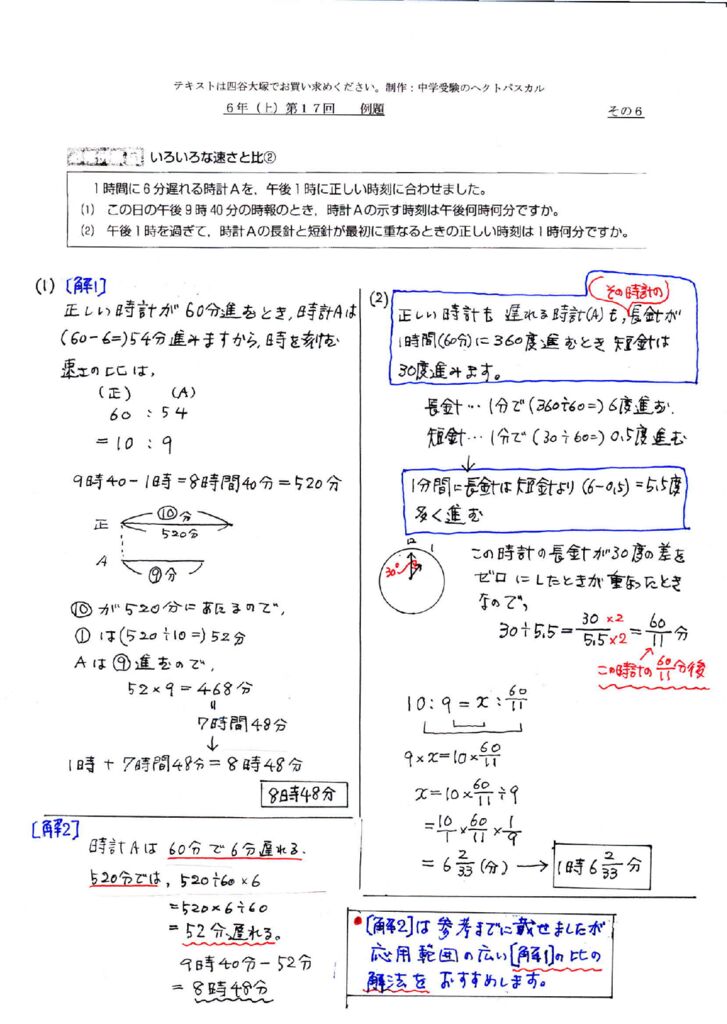 テキストは四谷大塚でお買い求めください。制作：中学受験のヘクトパスカル
６年（上）第１７回　例題
その６
いろいろな速さと比②
１時間に６分遅れる時計Ａを，午後１時に正しい時刻に合わせました。
(1)　この日の午後９時４０分の時報のとき，時計Ａの示す時刻は午後何時何分ですか。
(2)　午後１時を過ぎて，時計Ａの長針と短針が最初に重なるときの正しい時刻は１時何分ですか。
(1)［解1］
正しい時計が60分進むとき，時計Aは
(60－6=)54分進みますから，時を刻む
速さの比は，
(正)　(A)
60 : 54
= 10 : 9
9時40－1時=8時間40分=520分
正　⑩分
520分
A
⑨分
⑩が520分にあたるので，
①は(520÷10=)52分
Aは⑨進むので，
52×9=468分
〃
7時間48分
↓
1時+7時間48分=8時48分
8時48分
［解2］
時計Aは 60分で6分遅れる.
520分では，520÷60×6
=520×6÷60
=52分遅れる。
9時40分－52分
= 8時48分
(2)
その時計の
正しい時計も 遅れる時計(A)も，長針が
1時間(60分)に360度進むとき 短針は
30度進みます。
長針…1分で(360÷60=)6度進む.
短針…1分で(30÷60=)0.5度進む
↓
1分間に長針は短針より(6-0.5)=5.5度
多く進む
12
1
30°
この時計の長針が30度の差を
ゼロにしたときが重なったとき
なので，
30÷5.5=30×2/5.5×2=60/11分
この時計の60/11分後
10:9=x:60/11
9×x=10×60/11
x=10×60/11÷9
=10/1×60/11×1/9
=6 2/33(分)→1時6 2/33分
［解2］は参考までに載せましたが
応用範囲の広い［解1］の比の
解法を おすすめします。